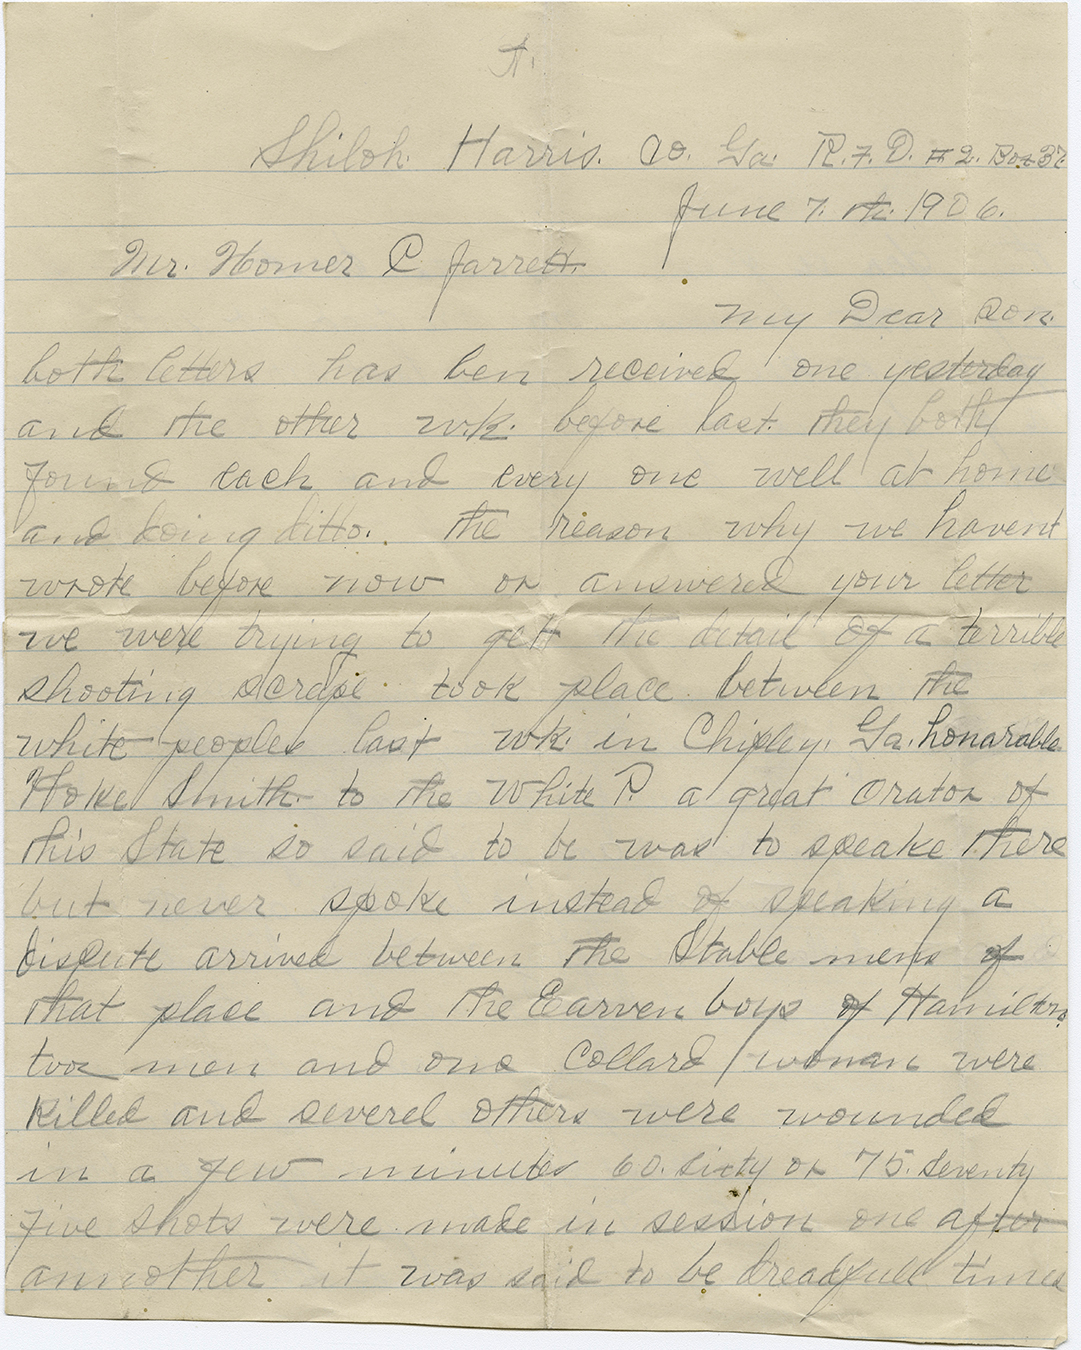 Shiloh. Harris. Co. Ga. R.F.D. #2. Box
June 7. th. 1906.
Mr. Homer C Jarrett.
My Dear Son.
both letters has ben received one yesterday
and the other wk. before last. they both
found each and every one well at home
and doing ditto. the reason why we havent
wrote before now or answered your letter
we were trying to gett the detail of a terrible
shooting scrape took place between the
white peoples last wk. in Chipley. Ga. honarable
Hoke Smith to the White P. a great orator of
this State so said to be was to speake there
but never spoke instead of speaking a
dispute arrived between the Stable mens of
that place and the Earven boys of Hamilton
two men and one Collard woman were
killed and severel others were wounded
in a few minutes 60. sixty or 75. seventy
five shots were made in session one after
annother it was said to be dreadfull times